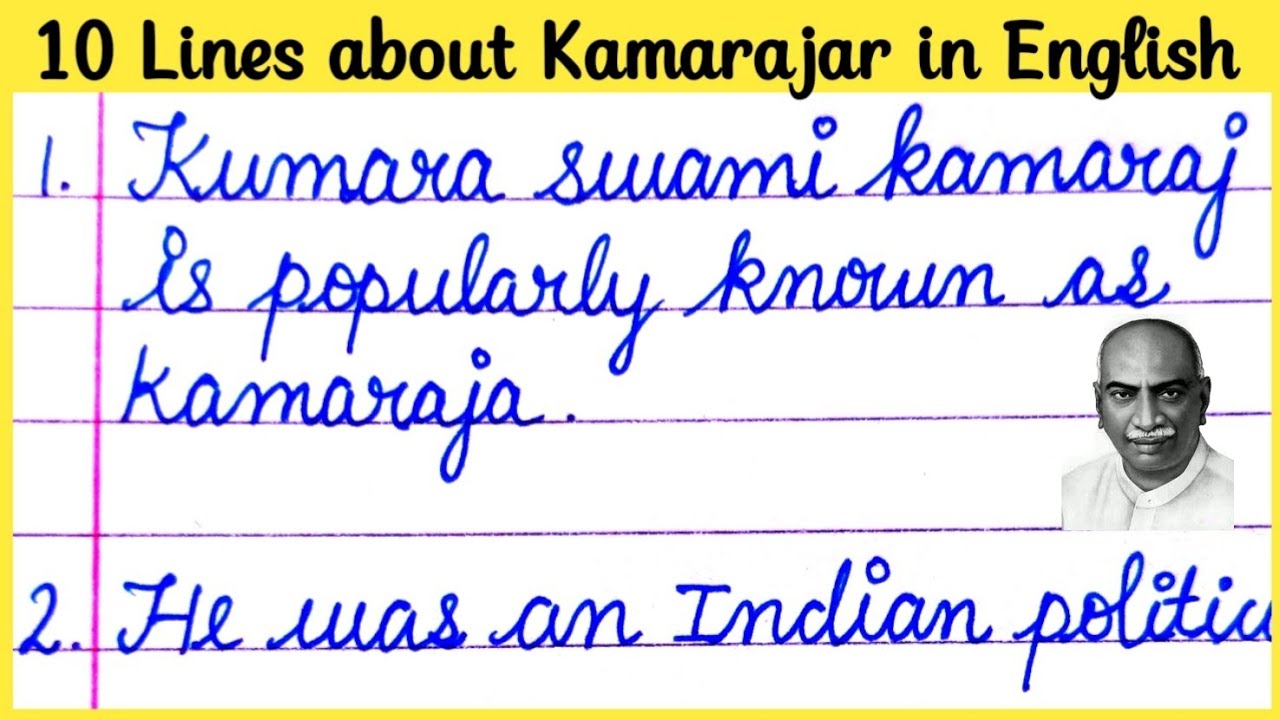 10 Lines about Kamarajar in English
1. Kumara swami kamaraj
is popularly known as
Kamaraja.
2. He was an Indian politic